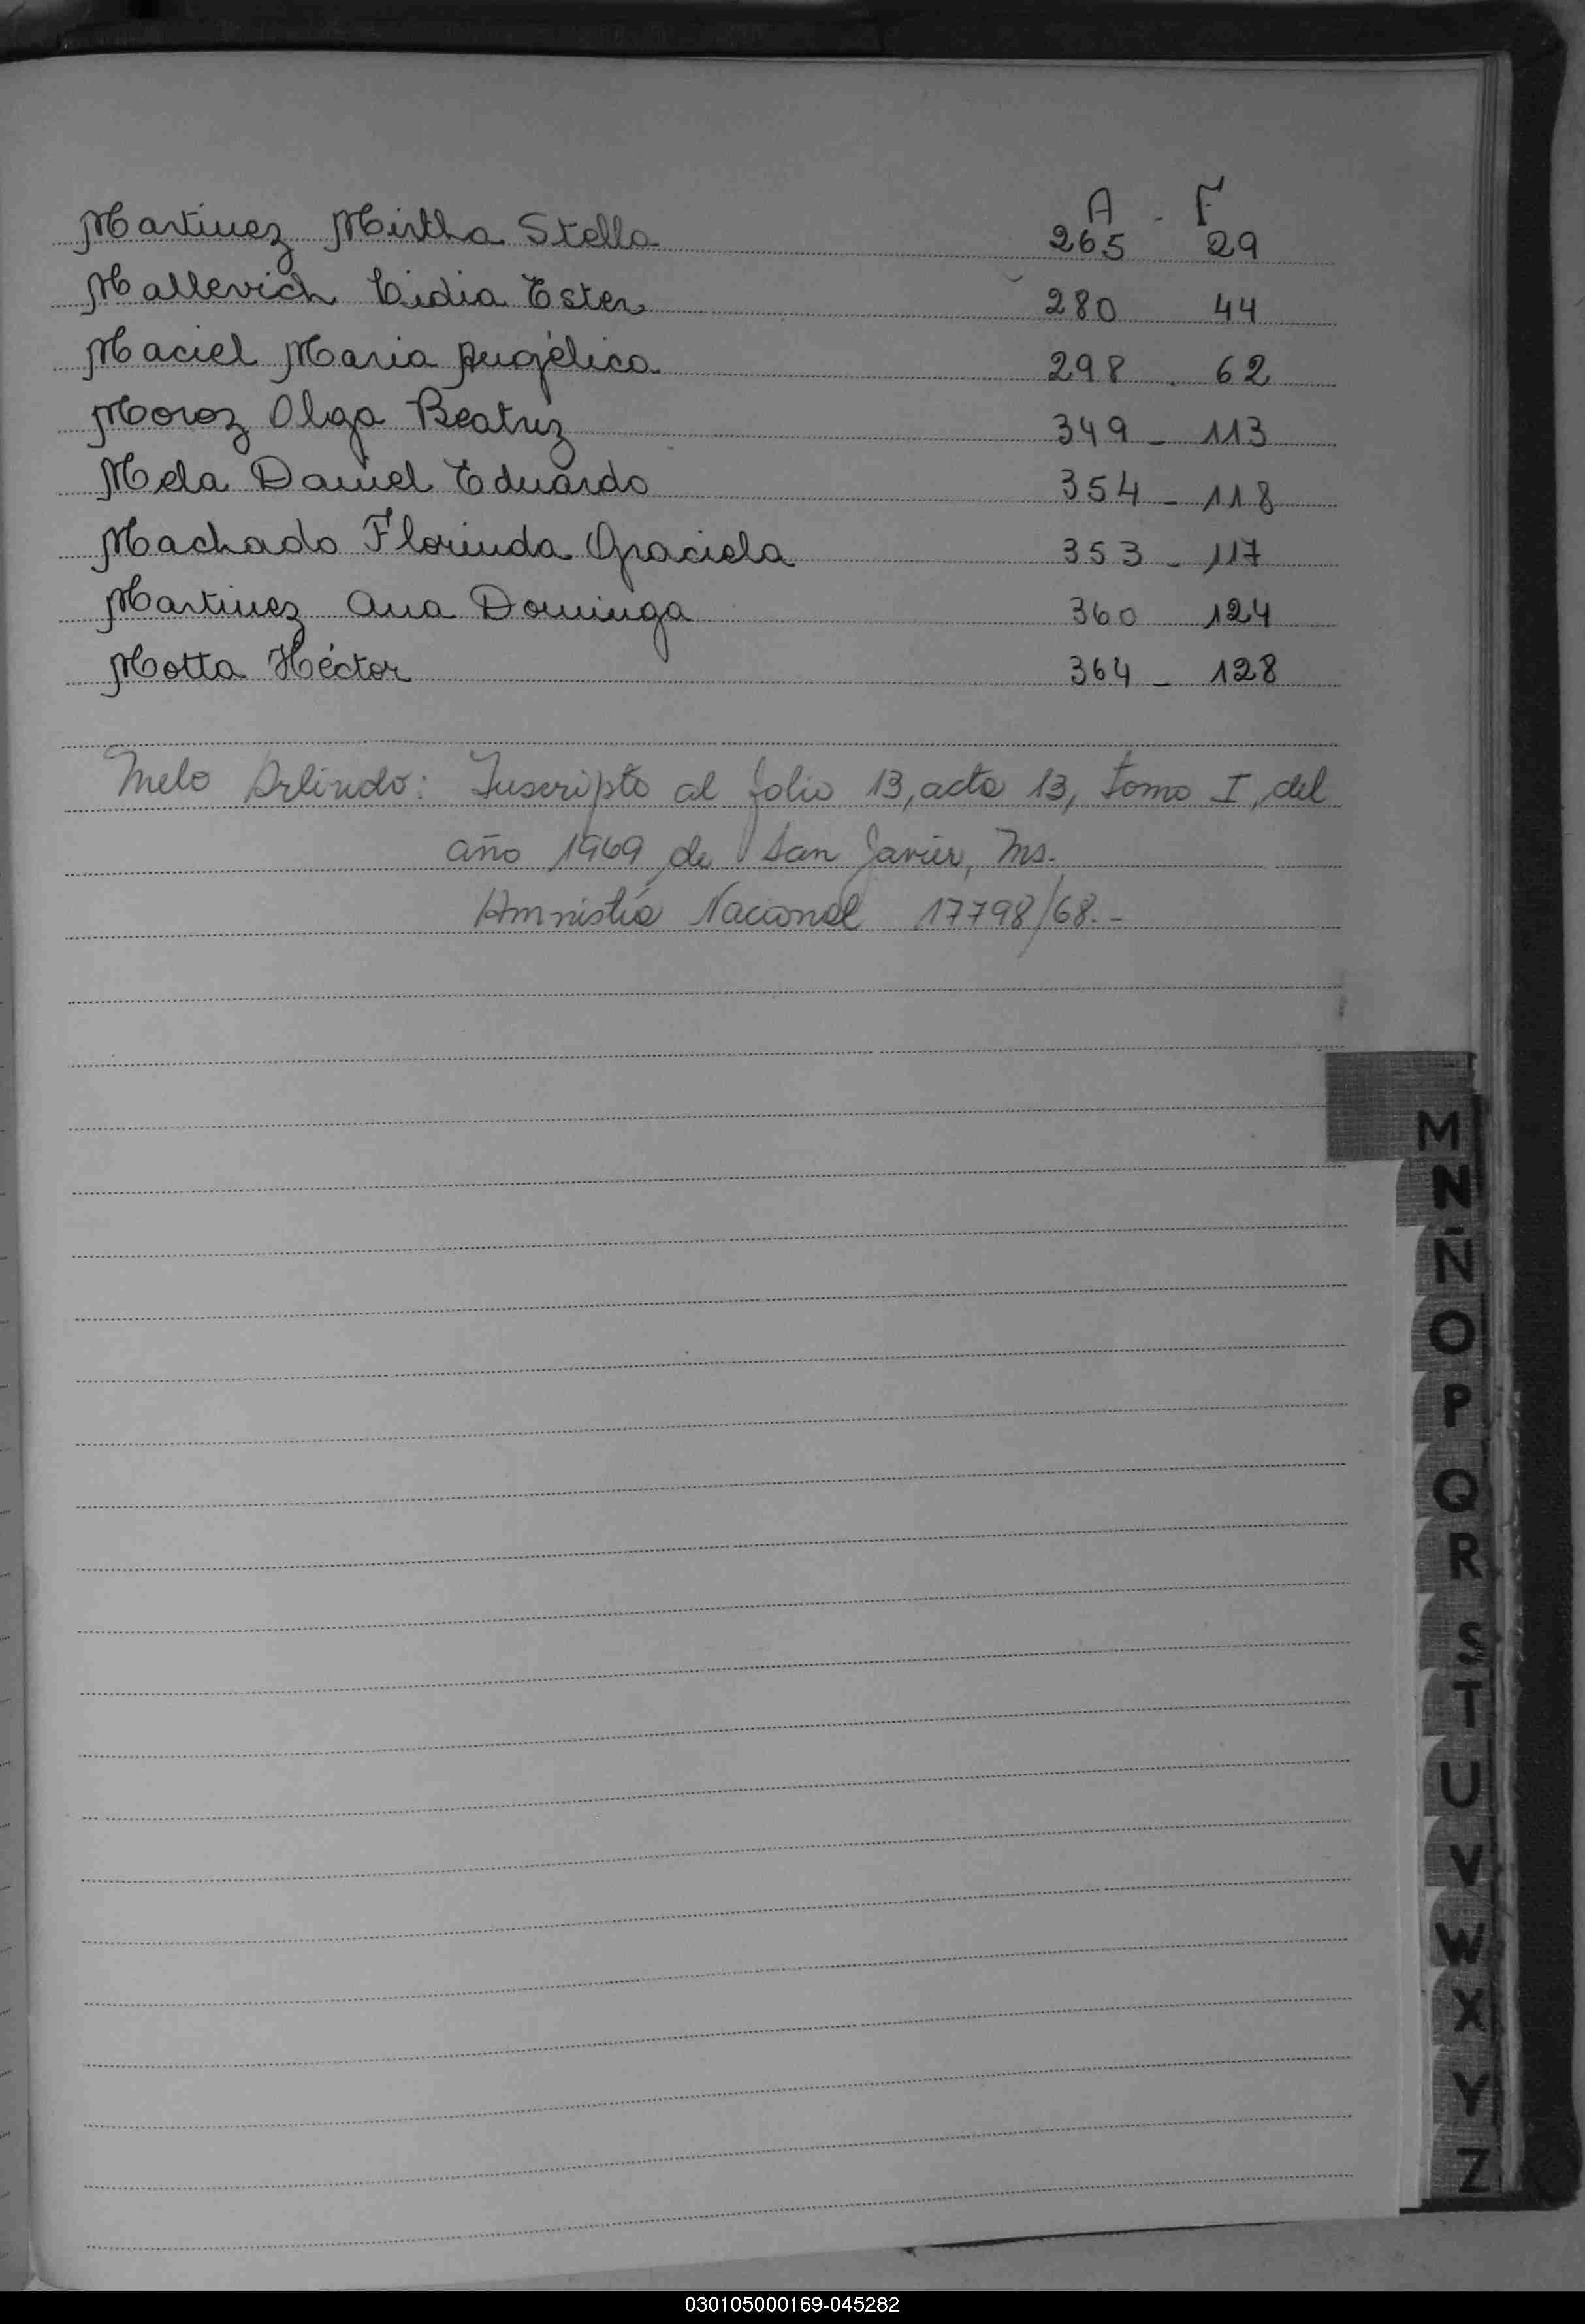 A - F
Martinez Mirtha Stella 265 29
Mallevich Lidia Ester 280 44
Maciel Maria Angélica 298 . 62
Moroz Olga Beatriz 349 - 113
Mela Daniel Eduardo 354 - 118
Machado Florinda Graciela 353 - 117
Martinez Ana Dominga 360 124
Motta Héctor 364 - 128
Melo Arlindo: Inscripto al folio 13, acta 13, tomo I, del
año 1969 de San Javier, Ms.
Amnistía Nacional 17798/68.-
M
N
Ñ
O
P
Q
R
S
T
U
V
W
X
Y
Z
030105000169-045282